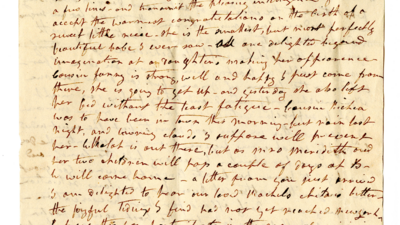 a few lines - and transmit the pleasing intelligence
accept the warmest congratulations on the birth of a
sweet little niece. she is the smallest, but most perfectly
beautiful babe I ever saw - all are delighted beyond
imagination at a daughters making her appearance
Cousin Fanny is strong, well and happy I just came from
there, she is going to get up - and yesterday she also left
her bed without the least fatigue - Cousin
was to have been in town this morning but rain last
night, and lowering clouds I suppose will prevent
her - is out there, but as Miss Meredith and
her two children will pass a couple of days at B-
h will come home - a letter from you just arrived
I am delighted to hear our good Rachels better
the joyful tidings I find had not yet reached